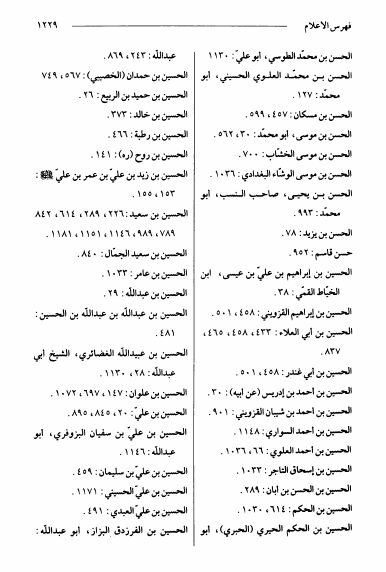 فهرس الأعلام
١٢٢٩
الحسن بن محمّد الطوسي، أبو عليّ: ١١٣٠
الحسن بن محمّد العلوي الحسيني، أبو
محمّد: ١٢٧.
الحسن بن مسكان: ٤٥٧، ٥٩٩.
الحسن بن موسى، أبو محمّد: ٣٠، ٥٦٢.
الحسن بن موسى الخشّاب: ٧٠٠.
الحسن بن موسى الوشّاء البغدادي: ١٠٣٦.
الحسن بن يحيى، صاحب النسب، أبو
محمّد: ٩٩٣.
الحسن بن يزيد: ٧٨.
حسن قاسم: ٩٥٢.
الحسين بن إبراهيم بن عليّ بن عيسى، ابن
الخيّاط القمّي: ٣٨.
الحسين بن إبراهيم القزويني: ٤٥٨، ٥٠١.
الحسين بن أبي العلاء: ٤٣٣، ٤٥٨، ٤٦٥،
٨٣٧.
الحسين بن أبي غندر: ٤٥٨، ٥٠١.
الحسين بن أحمد بن إدريس (عن أبيه): ٣٠.
الحسين بن أحمد بن شيبان القزويني: ٩٠١.
الحسين بن أحمد السواري: ١١٤٨.
الحسين بن أحمد العلوي: ٦٦، ١٠٣٦.
الحسين بن إسحاق التاجر: ١٠٣٣.
الحسين بن الحسن بن أبان: ٢٨٩.
الحسين بن الحكم: ٦١٤، ١٠٣٠.
الحسين بن الحكم الحيري (الحبري)، أبو
عبدالله: ٢٤٣، ٨٦٩.
الحسين بن حمدان (الخصيبي): ٥٦٧، ٧٤٩
الحسين بن حميد بن الربيع: ٢٦.
الحسين بن خالد: ٣٧٣.
الحسين بن رطبة: ٤٦٦.
الحسين بن روح (ره): ١٤١.
الحسين بن زيد بن عليّ بن عمر بن عليّ ﷺ:
١٥٣، ١٥٥.
الحسين بن سعيد: ٢٢٦، ٢٨٩، ٦١٤، ٨٤٢
٧٨٩، ٩٨٩، ١١٤٦، ١١٥١، ١١٨١.
الحسين بن سعيد الجمّال: ٨٤٠.
الحسين بن عامر: ١٠٣٣.
الحسين بن عبدالله: ٢٩.
الحسين بن عبدالله بن عبدالله بن الحسين:
٤٨١.
الحسين بن عبيدالله الغضائري، الشيخ أبي
عبدالله: ٢٨، ١١٣٠.
الحسين بن علوان: ١٤٧، ٦٩٧، ١٠٧٢.
الحسين بن عليّ: ٢٠، ٨٤٥، ٨٩٥.
الحسين بن علي بن سفيان البزوفري، أبو
عبدالله: ١١٤٦.
الحسين بن عليّ بن سليمان: ٤٥٩.
الحسين بن عليّ الحسيني: ١١٧١.
الحسين بن عليّ العبدي: ٤٩١.
الحسين بن الفرزدق البزاز، أبو عبدالله: